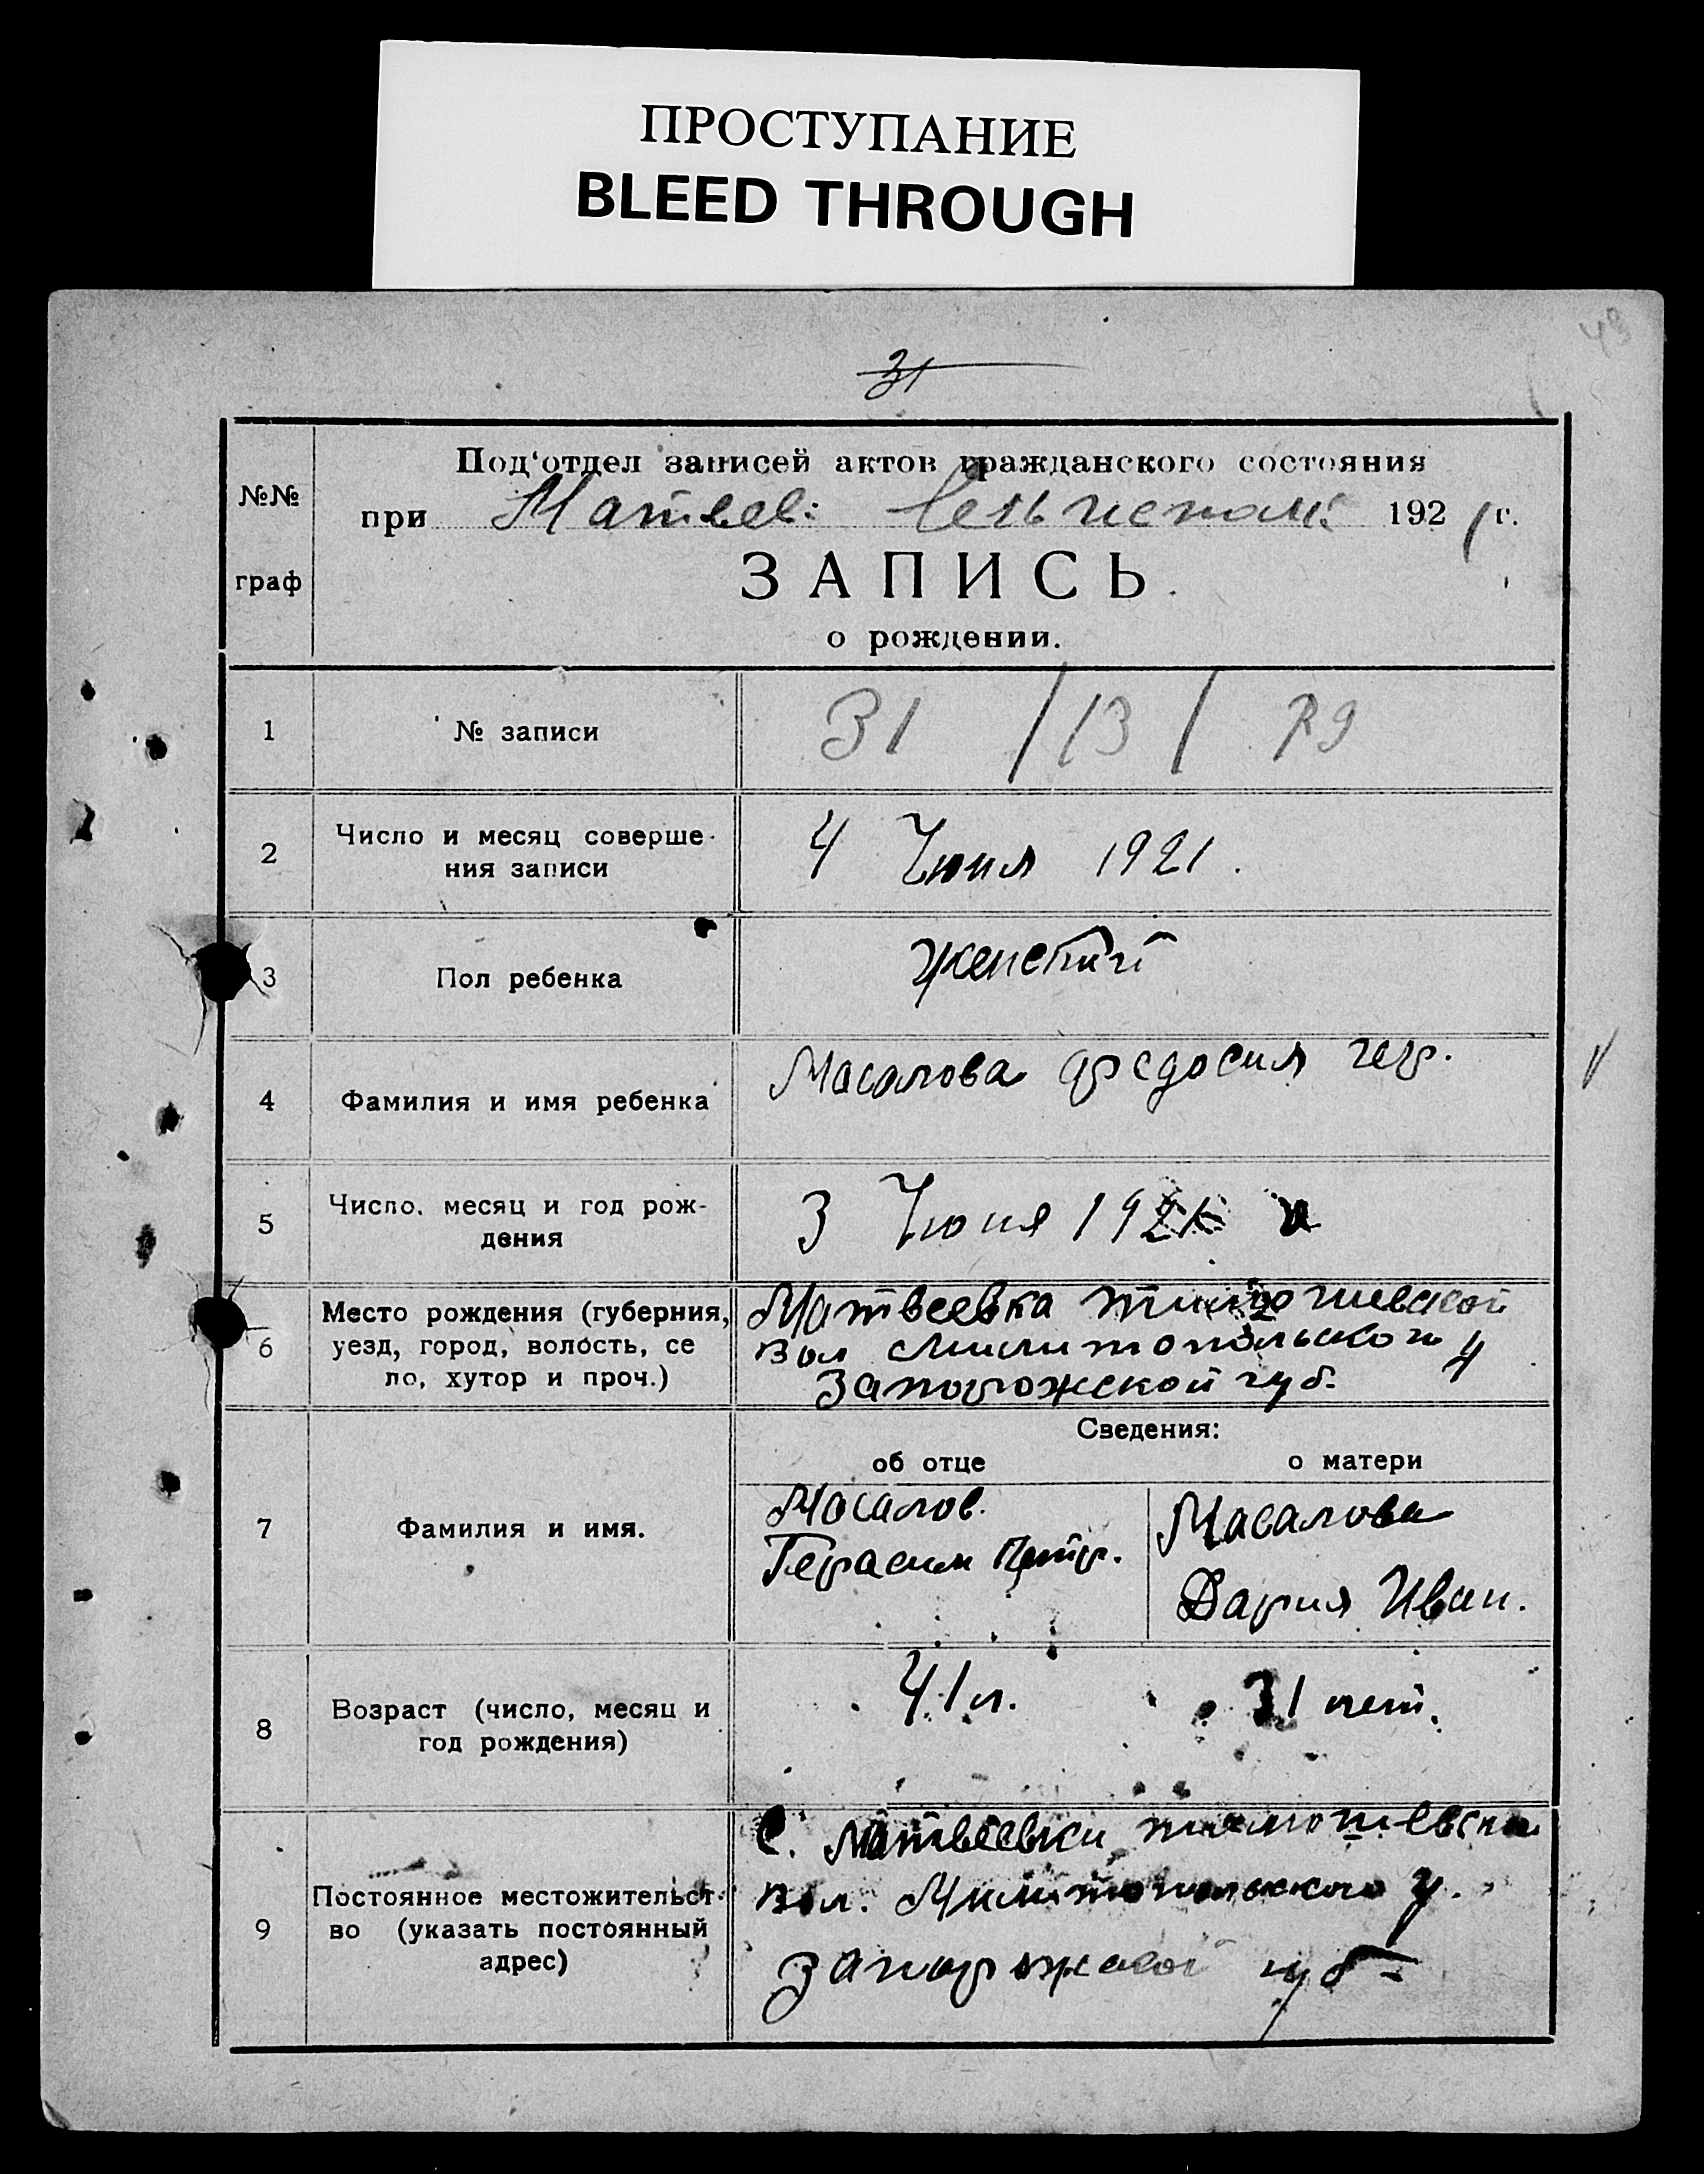 ПРОСТУПАНИЕ
BLEED THROUGH
43
31
Под‘отдел записей актов гражданского состояния
№№ граф
при Матвев: Сельисполк: 1921 г.
ЗАПИСЬ
о рождении.
1 № записи 31 / 13 / 79
2 Число и месяц соверше-
ния записи 4 Июня 1921.
3 Пол ребенка Женский
4 Фамилия и имя ребенка Масалова Федосия Гер.
5 Число, месяц и год рож-
дения 3 Июня 1921
6 Место рождения (губерния,
уезд, город, волость, се
ло, хутор и проч.)
Матвеевка Тимошевской
вол Милитопольского у
Запорожской губ.
Сведения:
об отце о матери
7 Фамилия и имя.
Масалов.
Герасим Петр.
Масалова
Дария Иван.
8 Возраст (число, месяц и
год рождения) 41 л. 31 лет.
9 Постоянное местожительст-
во (указать постоянный
адрес)
С. Матвеевки Тимошевской
вол. Милитопольского у.
Запорожской губ